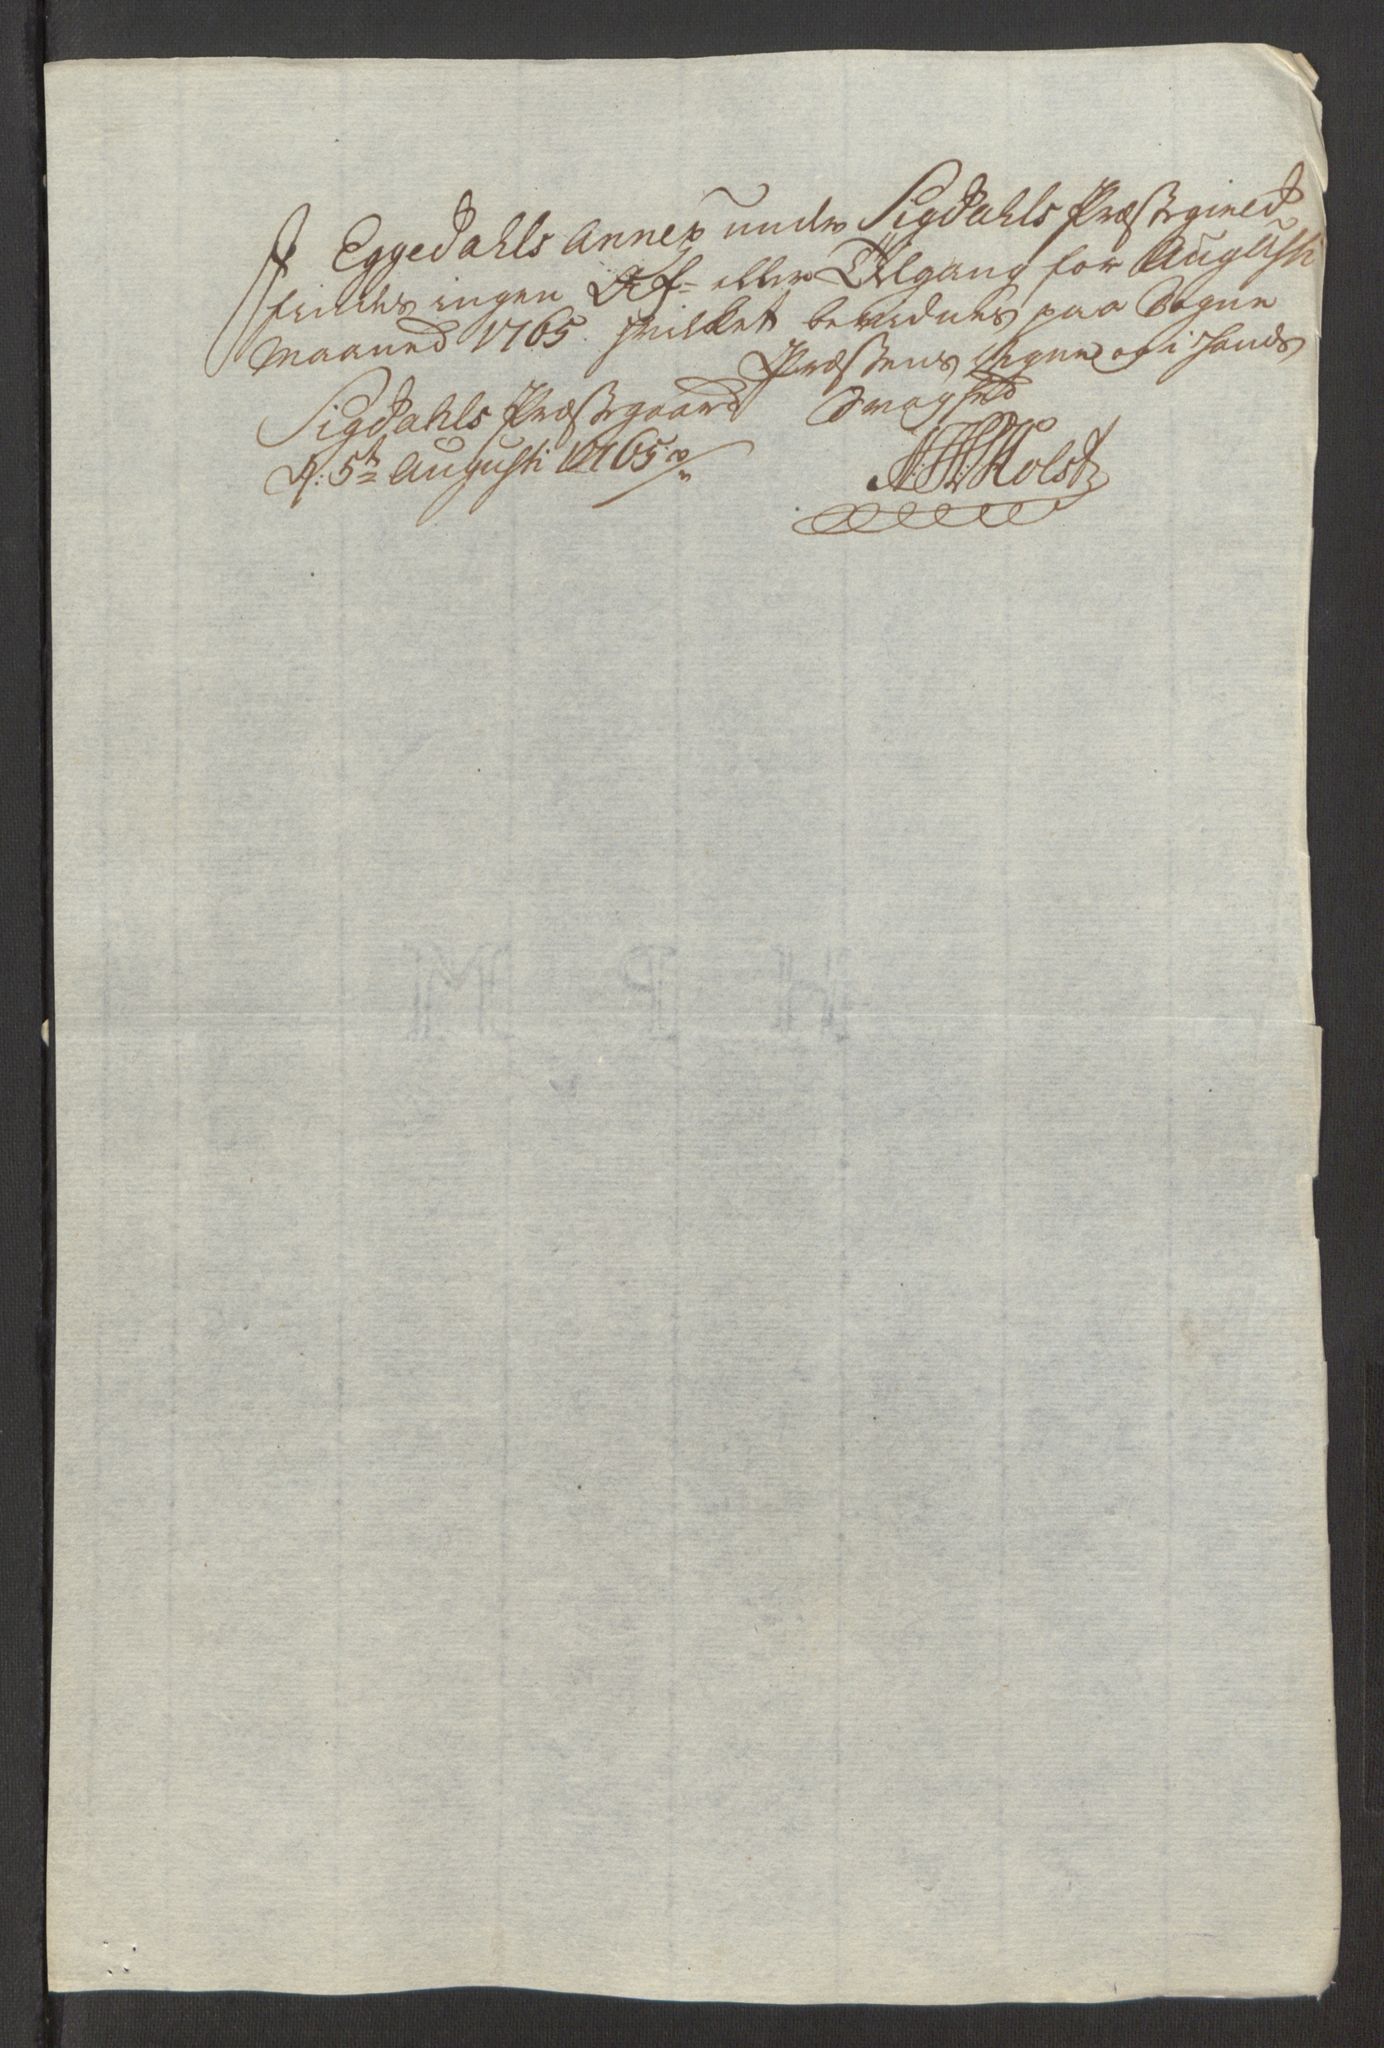 I Eggedahls Annex under Sigdahls Præstegield
findes ingen Af- eller Tilgang for Augusti
Maaned 1765. hvilket bevidnes paa Sogne
Præstens Vegne og i hands
Svaghed
Sigdahls Præstegaard
d: 5te Augusti 1765
A: H: Holst
H P M